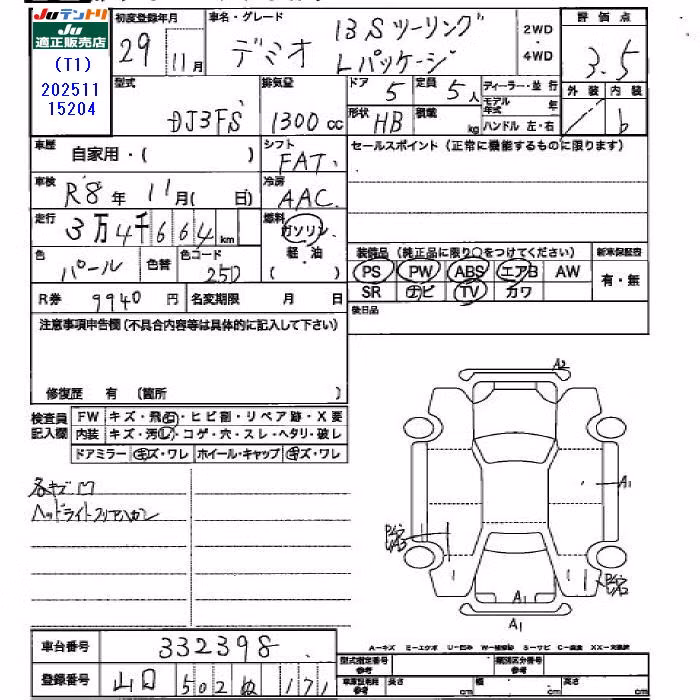 JUテントリ
JU
適正販売店
(T1)
202511
15204
初度登録年月
29 11月
車名・グレード
デミオ
13Sツーリング
Lパッケージ
2WD
・
4WD
評価点
3.5
外装 内装
b
型式
DJ3FS
排気量
1300cc
ドア 5
定員 5人
形状 HB
積載 kg
ディーラー・並行
モデル年式 年
ハンドル 左・右
車歴
自家用・( )
シフト
FAT
セールスポイント(正常に機能するものに限ります)
車検
R8年 11月( 日)
冷房
AAC
走行
3万4千664km
燃料
ガソリン
軽・油
( )
色
パール
色替
色コード
25D
装備品(純正品に限り○をつけてください)
新車保証書
PS PW ABS エアB AW
有・無
SR ナビ TV カワ
R券 9940円
名変期限 月 日
後日品
注意事項申告欄(不具合内容等は具体的に記入して下さい)
修復歴 有 〔箇所 〕
検査員
記入欄
FW キズ・飛石・ヒビ割・リペア跡・X要
内装 キズ・汚れ・コゲ・穴・スレ・ヘタリ・破レ
ドアミラー キズ・ワレ ホイール・キャップ キズ・ワレ
各キズ凹
ヘッドライトクリアハガレ
A2
A1
A1
A1
車台番号 332398
登録番号 山口 502 ぬ 171
A-キズ E-エクボ U-凹み W-補修跡 S-サビ C-腐食 XX-交換歴
型式指定番号
参考
類別区分番号
参考
車庫証明用
参考
長さ cm
幅 cm
高さ cm